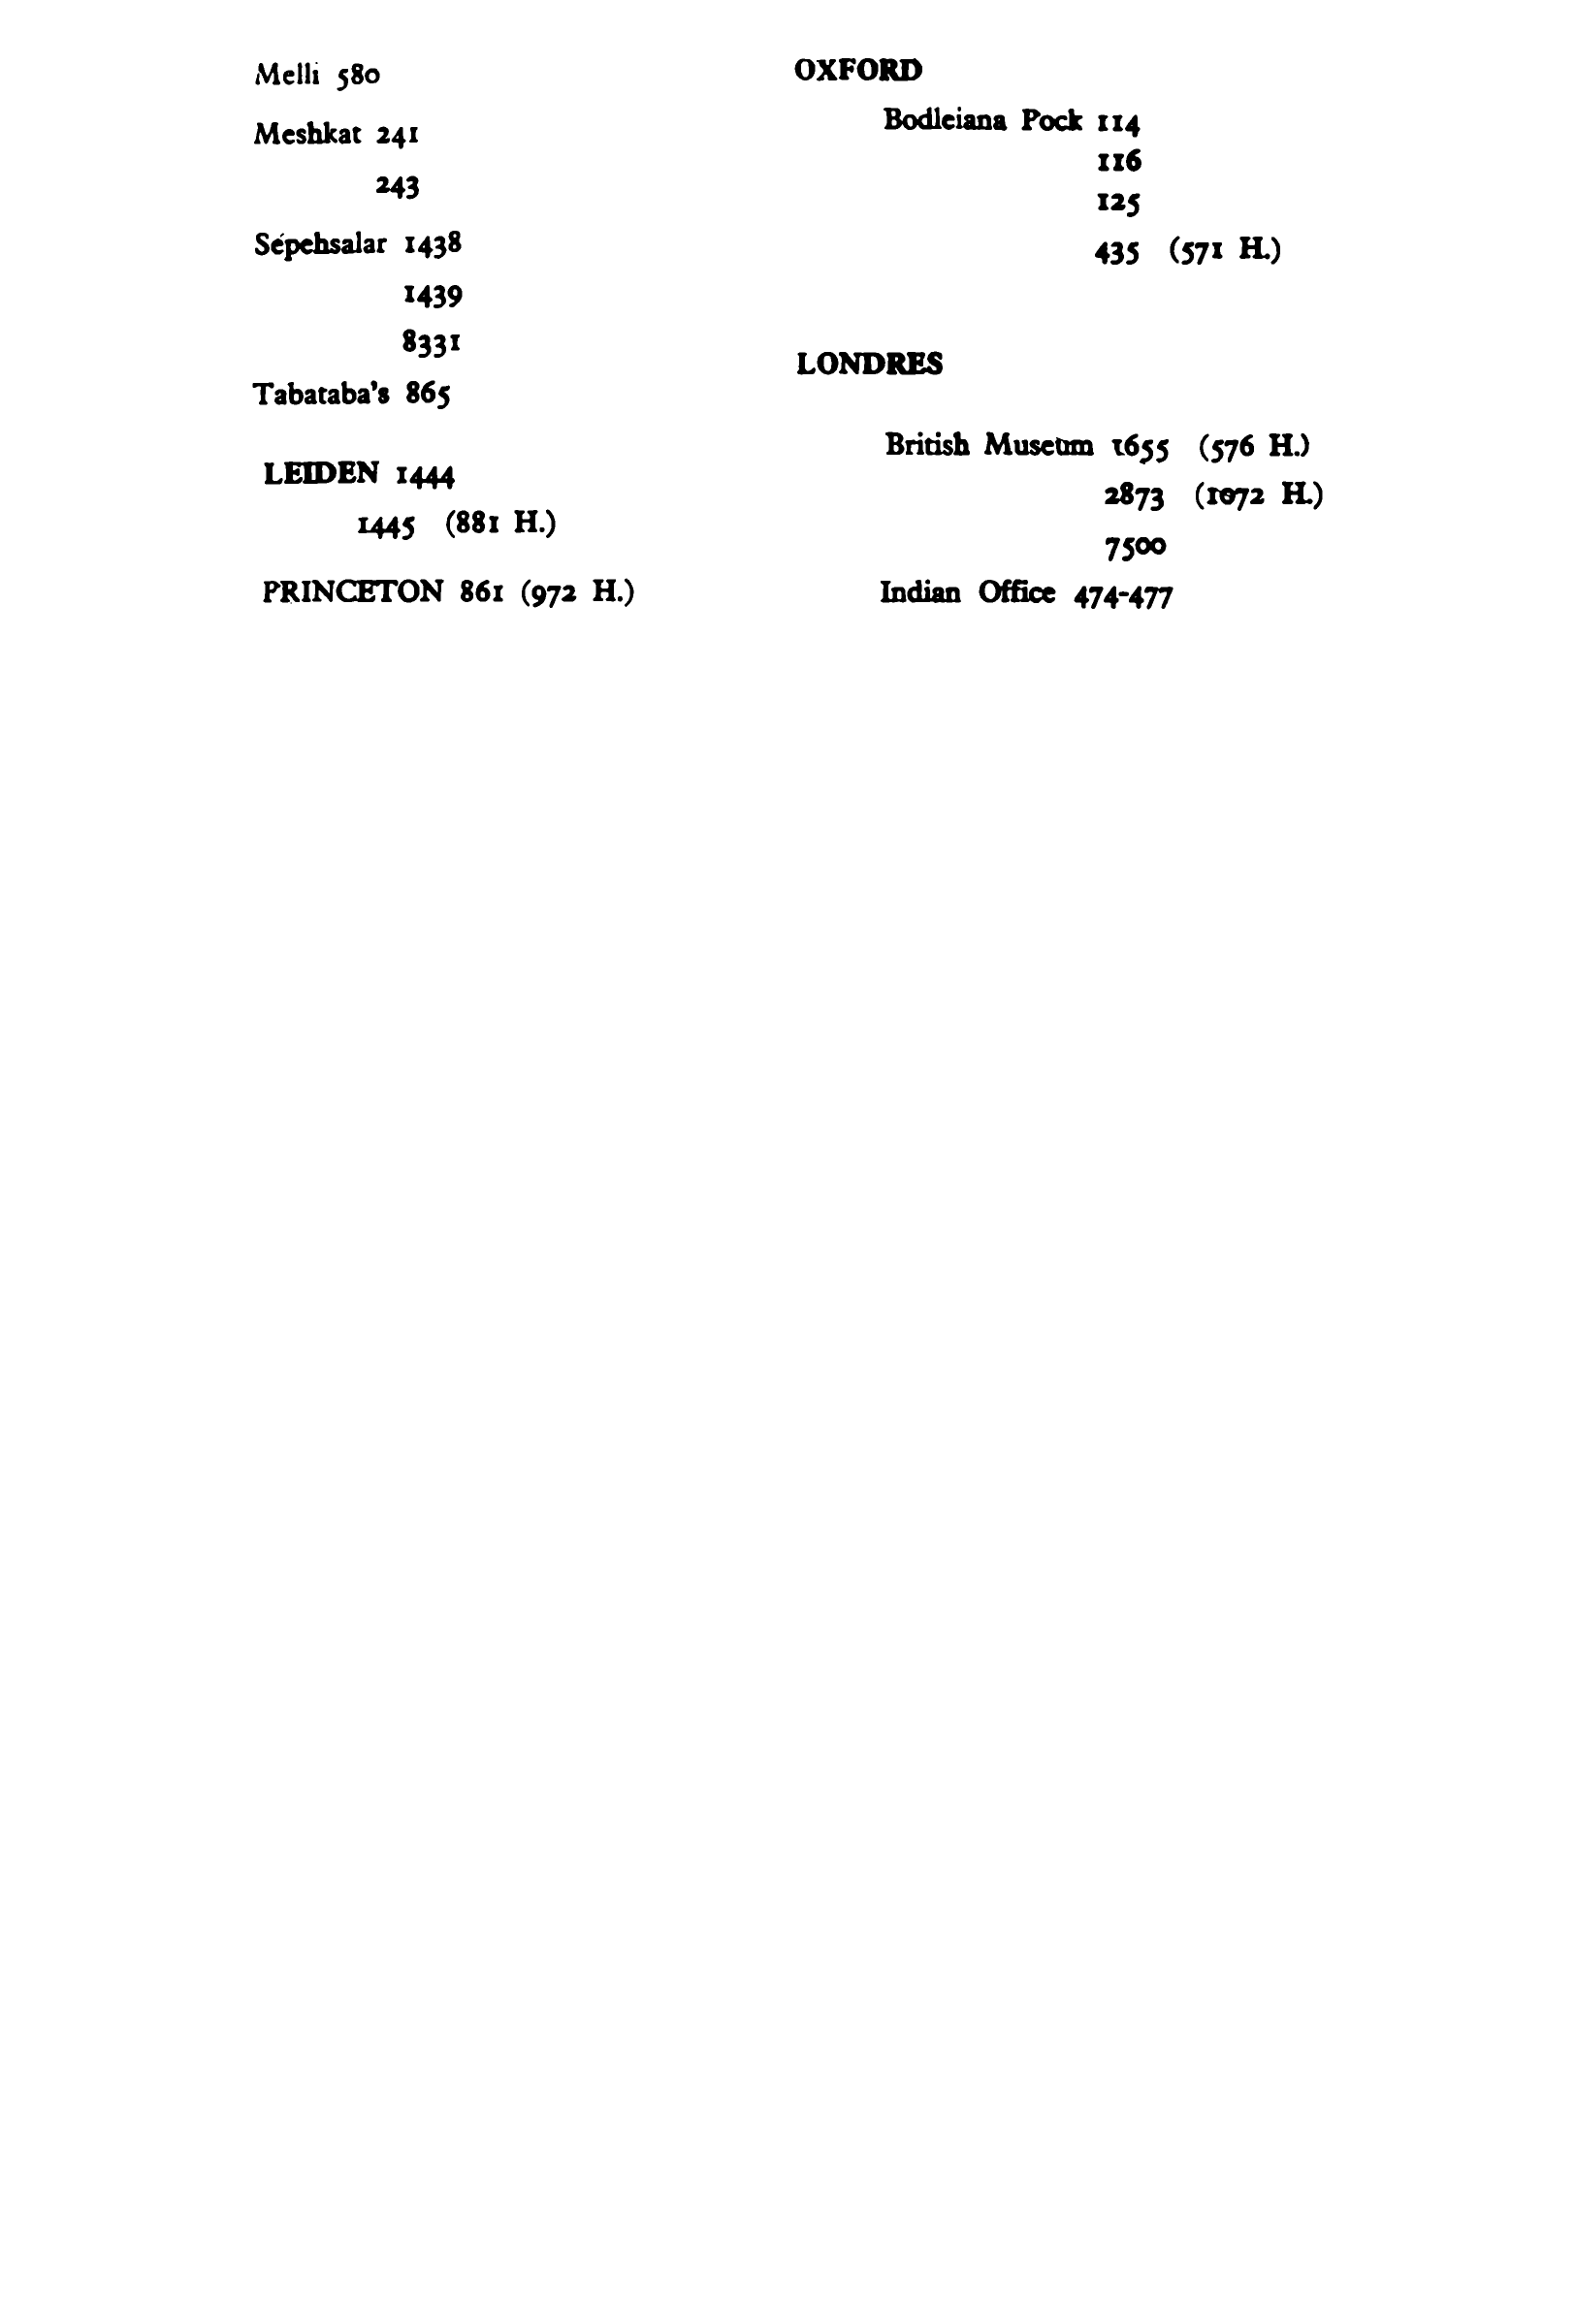 Melli 580
Meshkat 241
243
Sépehsalar 1438
1439
8331
Tabataba's 865
LEIDEN 1444
1445 (881 H.)
PRINCETON 861 (972 H.)
OXFORD
Bodleiana Pock 114
116
125
435 (571 H.)
LONDRES
British Museum 1655 (576 H.)
2873 (1072 H.)
7500
Indian Office 474-477